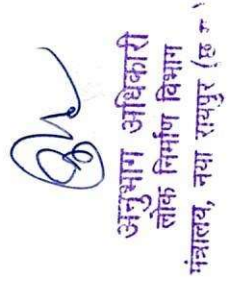 अनुभाग अधिकारी
लोक निर्माण विभाग
मंत्रालय, नया रायपुर (छ